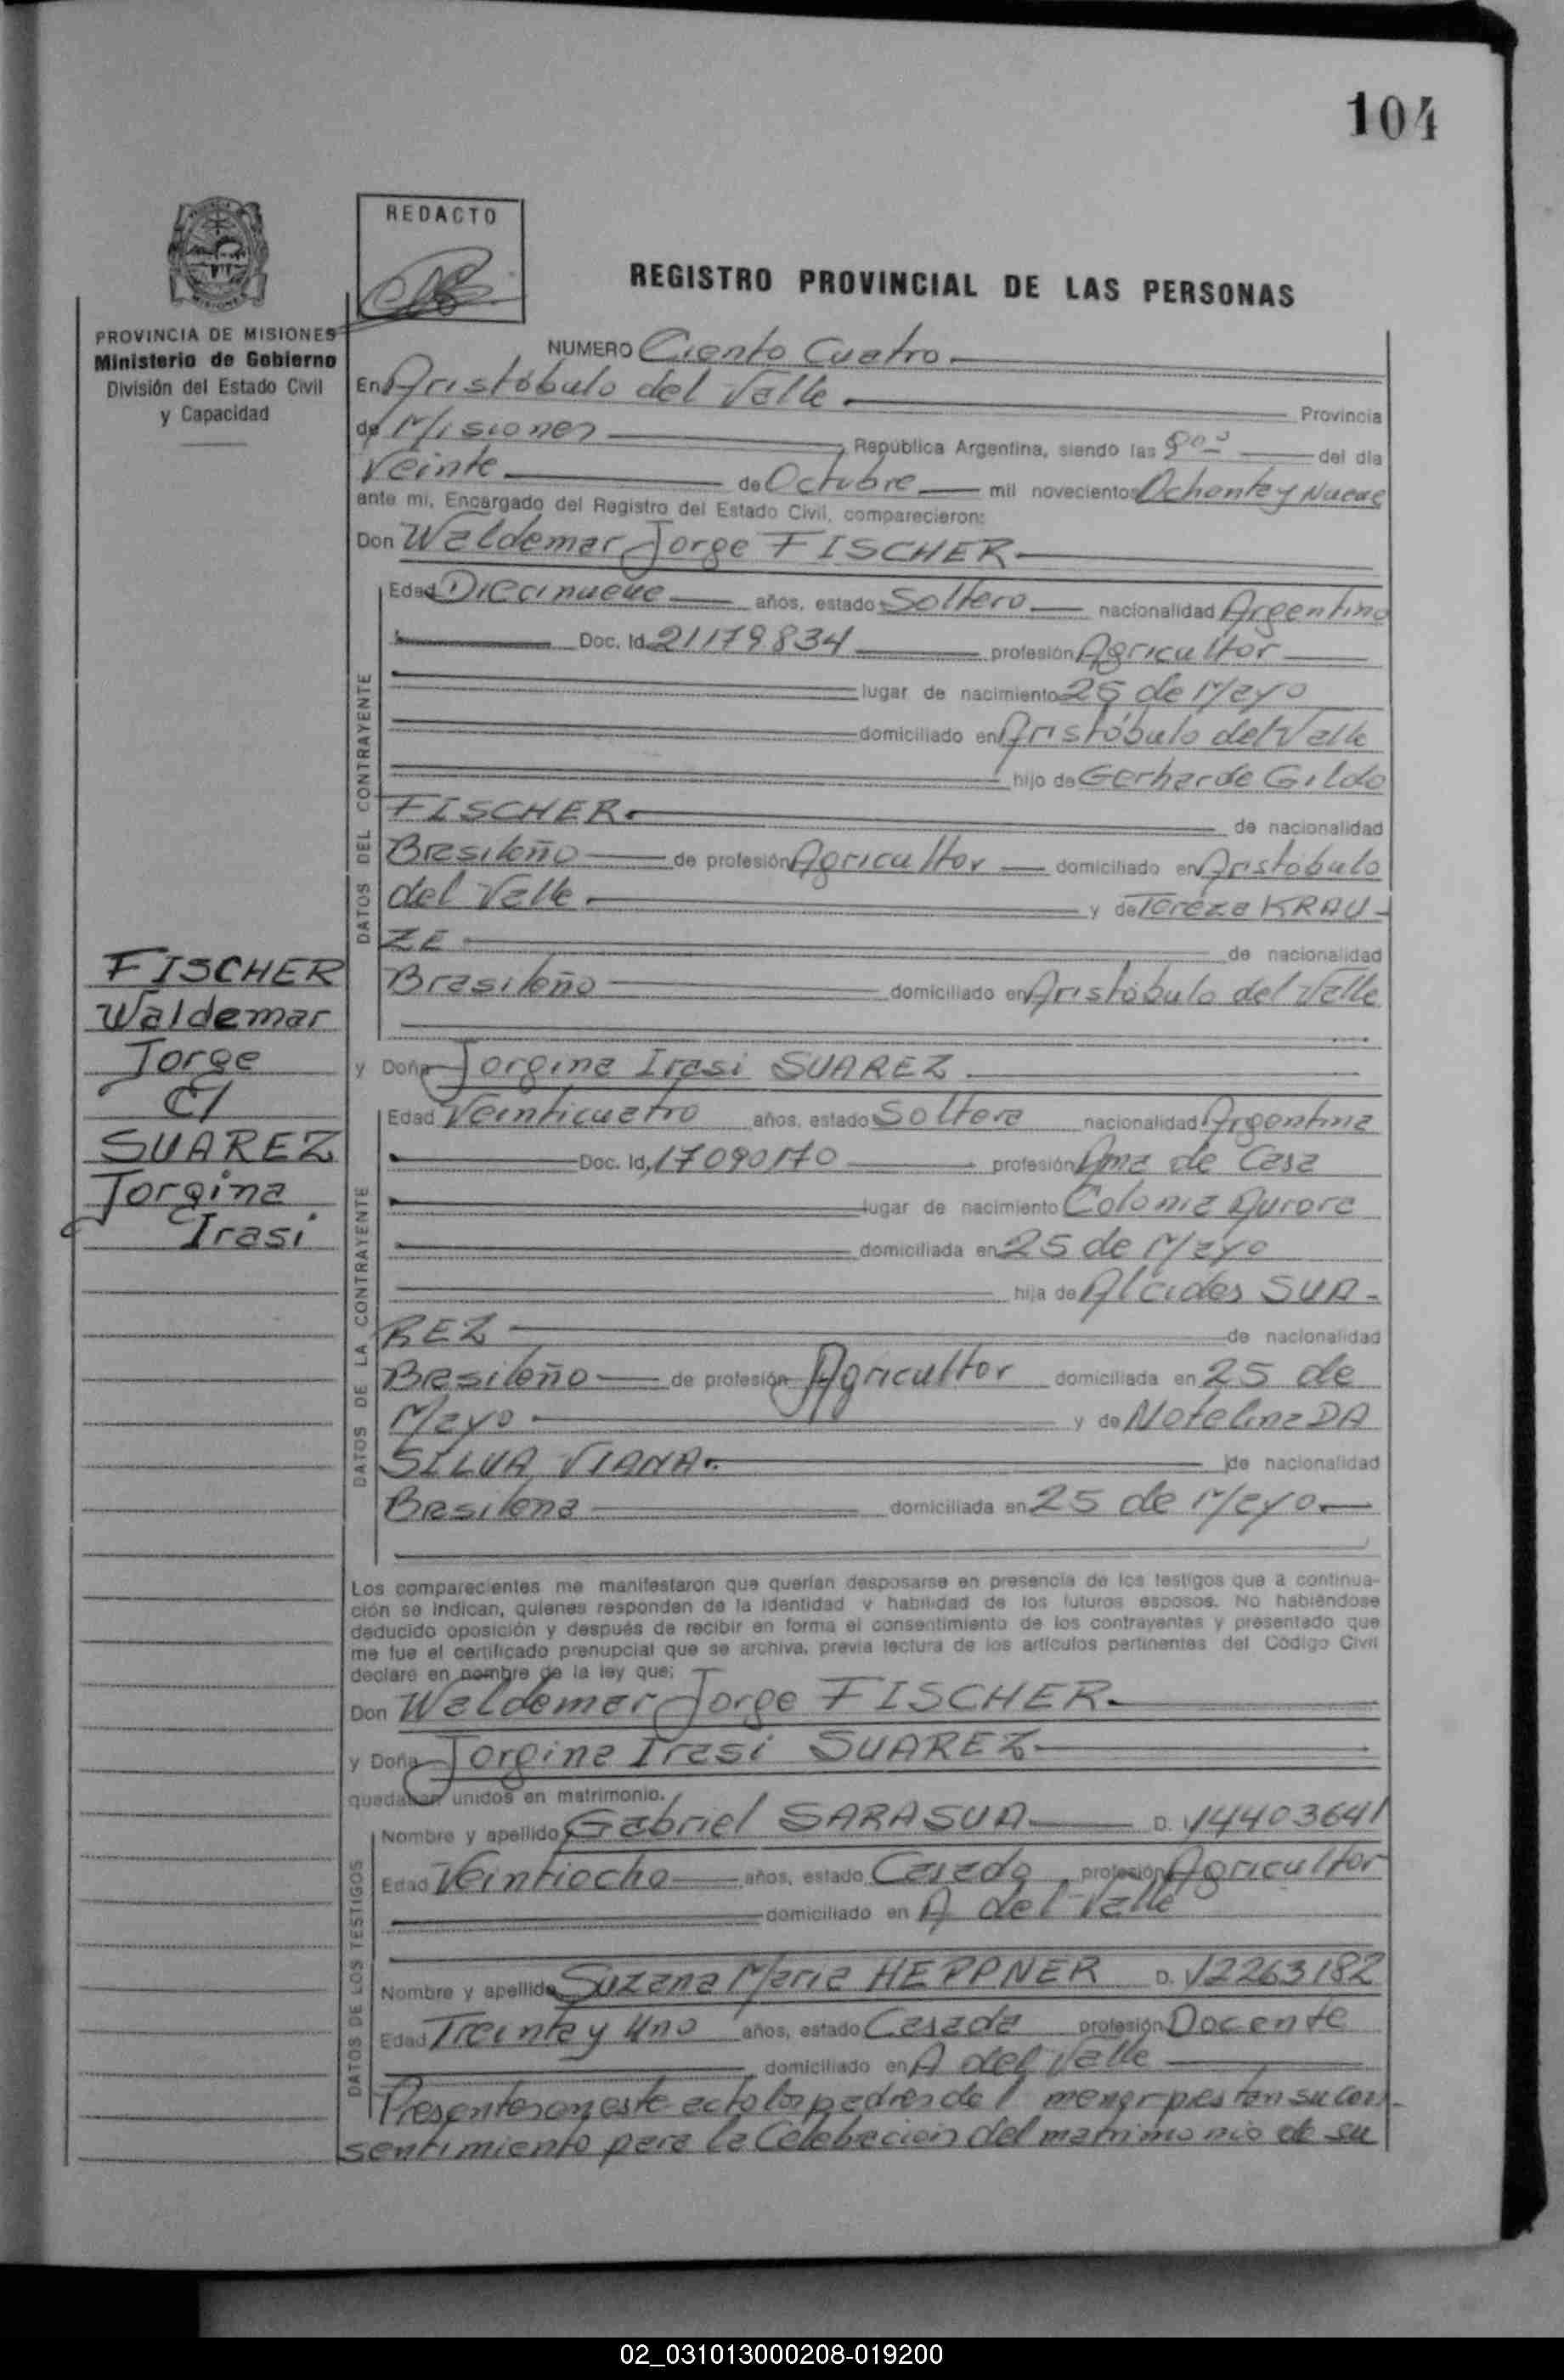 104
REDACTO
REGISTRO PROVINCIAL DE LAS PERSONAS
PROVINCIA DE MISIONES
Ministerio de Gobierno
División del Estado Civil
y Capacidad
NUMERO Ciento Cuatro
En Aristóbulo del Valle Provincia
de Misiones República Argentina, siendo las del día
Veinte de Octubre mil novecientos Ochenta y Nueve
ante mi, Encargado del Registro del Estado Civil, comparecieron:
Don Waldemar Jorge FISCHER
Edad Diecinueve años, estado Soltero nacionalidad Argentino
Doc. Id. 21179834 profesión Agricultor
lugar de nacimiento 25 de Mayo
domiciliado en Aristóbulo del Valle
hijo de Gerharde Gildo
FISCHER de nacionalidad
Brasileño de profesión Agricultor domiciliado en Aristóbulo
del Valle y de Tereza KRAU-
ZE de nacionalidad
Brasileño domiciliado en Aristóbulo del Valle
DATOS DEL CONTRAYENTE
FISCHER
Waldemar
Jorge
C/
SUAREZ
Jorgina
Irasi
y Doña Jorgina Irasi SUAREZ
Edad Veinticuatro años, estado Soltera nacionalidad Argentina
Doc. Id. 17090170 profesión Ama de Casa
lugar de nacimiento Colonia Aurora
domiciliada en 25 de Mayo
hija de Alcides SUA-
REZ de nacionalidad
Brasileño de profesión Agricultor domiciliada en 25 de
Mayo y de Notelina DA
SILVA VIANA de nacionalidad
Brasilena domiciliada en 25 de Mayo
DATOS DE LA CONTRAYENTE
Los comparecientes me manifestaron que querían desposarse en presencia de los testigos que a continua-
ción se indican, quienes responden de la identidad y habilidad de los futuros esposos. No habiéndose
deducido oposición y después de recibir en forma el consentimiento de los contrayentes y presentado que
me fue el certificado prenupcial que se archiva, previa lectura de los artículos pertinentes del Código Civil
declaré en nombre de la ley que:
Don Waldemar Jorge FISCHER
y Doña Jorgina Irasi SUAREZ
quedaban unidos en matrimonio.
Nombre y apellido Gabriel SARASUA D. 14403641
Edad Veintiocho años, estado Casado profesión Agricultor
domiciliado en A del Valle
Nombre y apellido Suzana Maria HEPPNER D. 12263182
Edad Treinta y Uno años, estado Casada profesión Docente
domiciliado en A del Valle
DATOS DE LOS TESTIGOS
Presenteron este acto los padres del menor prestan su con-
sentimiento para la Celebracion del matrimonio de su
02_031013000208-019200